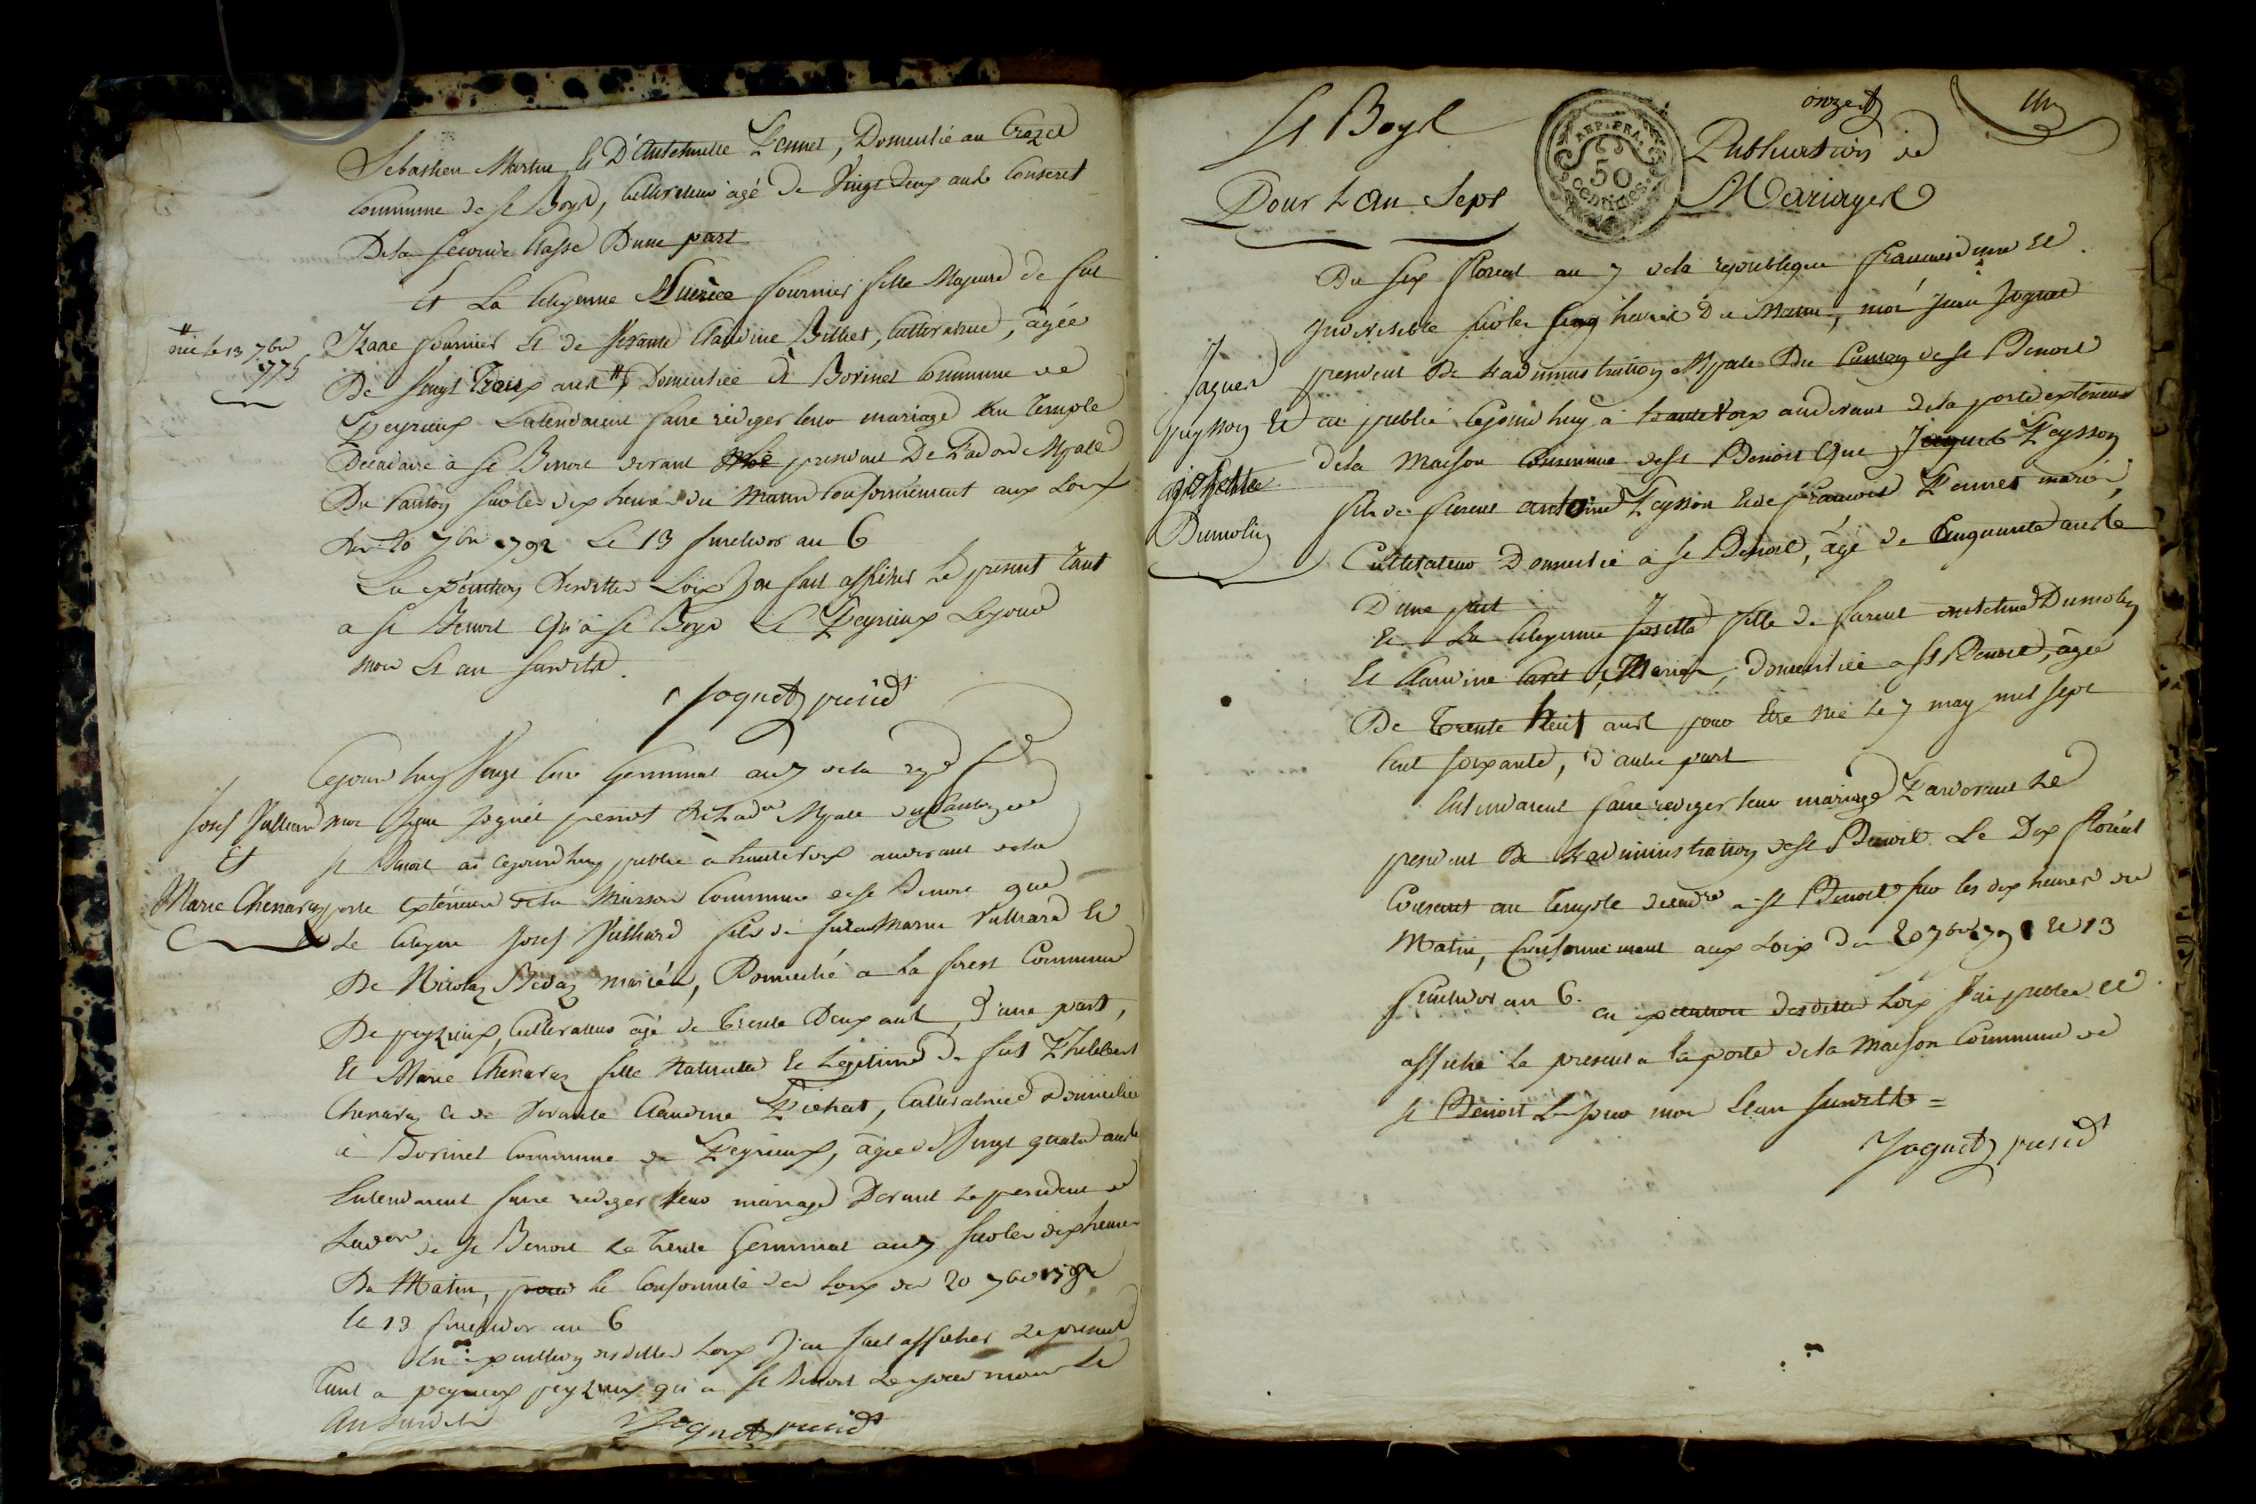 Sebastien Martin Et D'Antoinette Pennet, Domicilié au Crozet
Commune de St Boys, Cultivateur âgé de Vingt deux ants Conscrit
De la seconde Classe D'une part
Et La Citoyenne fournier fille Majeure de fut
Isaac fournier Et de vivante Claudine Billiet, Cultivatrice, âgée
née le 13 7bre
775
De Vingt Trois ants #, Domiciliée à Borinet Commune de
Peyrieux Entendaient faire rédiger leur mariage Au Temple
Decadaire à St Benoit devant président De L'adon Mpale
Du Canton sur les dix heures du Matin Conformément aux Loix
Du 20 7bre 1792 Et 13 fructidor an 6
En exécution Desdittes Loix J'ai fait afficher Le present Tant
a St Benoit Qu'à St Boys Et Peyrieux Le jour
mois Et an susdits.
Joguet présidt
Cejourdhuy Vingt Germinal an 7 de la rep f
Josef Julliard
Et
Marie Chenavaz
moi Jean Joguet presidt De L'adon Mpale du Canton de
St Benoit ai cejourdhuy publié à haute voix audevant de la
porte Extérieure de la Maison Commune de St Benoit que
Le Citoyen Josef Julliard fils de Julliard Et
De Nicolaz mariés, Domicilié a la forest Commune
De peyzieux, Cultivateur âgé de Trente Deux ants, D'une part,
Et Marie Chenavaz fille Naturelle Et Légitime de fut Philibert
Chenavaz Et de vivante Claudine Pichat, Cultivatrice Domiciliée
à Borinet Commune de Peyrieux, âgée de Vingt quatre ants
Entendaient faire rediger leur mariage Devant Le president de
L'adon de St Benoit Le Trente Germinal an 7 sur les dix heures
Du Matin, Conformité des Loix du 20 7bre 1792
Et 13 fructidor an 6
En exécution desdittes Loix J'ai fait afficher Le present
Tant a peyzieux qu'a St Benoit Le jour mois Et
An susdits
Joguet présidt
St Boys
Pour L'an Sept
REP. FRA.
50
CENTIMES.
onze
Publications de
Mariages
Du six floreal an 7 de la republique francaise une Et
Indivisible sur les cinq heures Du Matin, moi Jean Joguet
président De L'administration Mpale Du Canton de St Benoit
Jaques
peysson Et
Josephte
Dumolin
ai publié cejourdhuy à haute voix audevant de la porte extérieure
de la Maison Commune de St Benoit Que Jaques Peysson
fils de furent antoine Peysson Et de francoise Pennet mariés,
Cultivateur Domicilié à St Benoit, âgé de Cinquante ants
D'une part
Et La Citoyenne Josette fille de furent antoine Dumolin
Et Claudine Mariés, Domiciliée a St Benoit, âgée
De Trente huit ants pour Etre née le 7 may mil sept
Cent soixante, D'autre part
Entendaient faire rediger leur mariage Pardevant Le
president De L'administration de St Benoit Le Dix floréal
Courant au Temple decadre a St Benoit sur les dix heures du
Matin, Conformément aux Loix Du 20 7bre 179 Et 13
fructidor an 6. en exécution desdittes Loix J'ai publié Et
affiché Le present a la porte de la Maison Commune de
St Benoit Le jour mois Et an susditts =
Joguet présidt